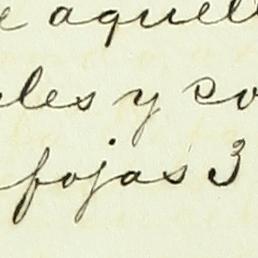 e aquell
les y co
fojas 3